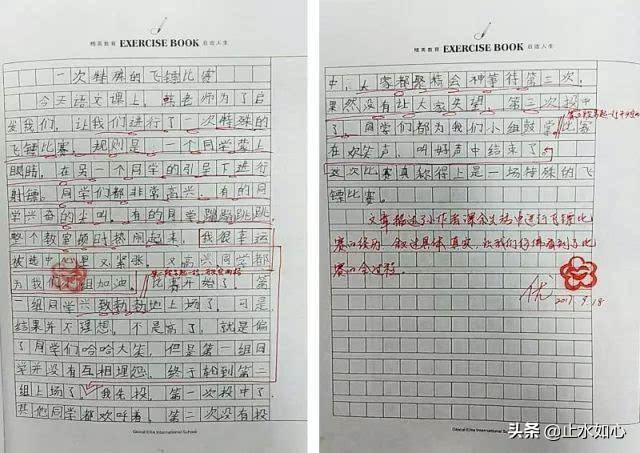 精英教育 EXERCISE BOOK 启迪人生
一次特殊的飞镖比赛
今天语文课上，熊老师为了启
发我们，让我们进行了一次特殊的
飞镖比赛。规则是：一个同学蒙上
眼睛，在另一个同学的引导下进行
射镖。同学们都非常高兴，有的同
学兴奋的尖叫，有的同学蹦蹦跳跳，
整个教室顿时热闹起来。我很幸运
被选中，心里又紧张，又高兴，同学都
为我们组加油。比赛开始了，第
一组同学兴致勃勃地上场了，可是
结果并不理想，不是高了，就是偏
了，同学们哈哈大笑，但是第一组同
学并没有互相埋怨。终于轮到第二
组上场了，我先投，第一次投中了，
其他同学都欢呼着，第二次没有投
Global Elite International School
精英教育 EXERCISE BOOK 启迪人生
中，大家都聚精会神等待第三次，
果然没有让大家失望，第三次投中
了，同学们都为我们小组鼓掌。比赛
在欢笑声，叫好声中结束了。
这次比赛真称得上是一场特殊的飞
镖比赛。
文章描述了小作者课余生活中进行飞镖比
赛的经历，叙述具体、真实，让我们仿佛看到了比
赛的全过程。
优
2017.9.18
Global Elite International School
头条 @止水如心